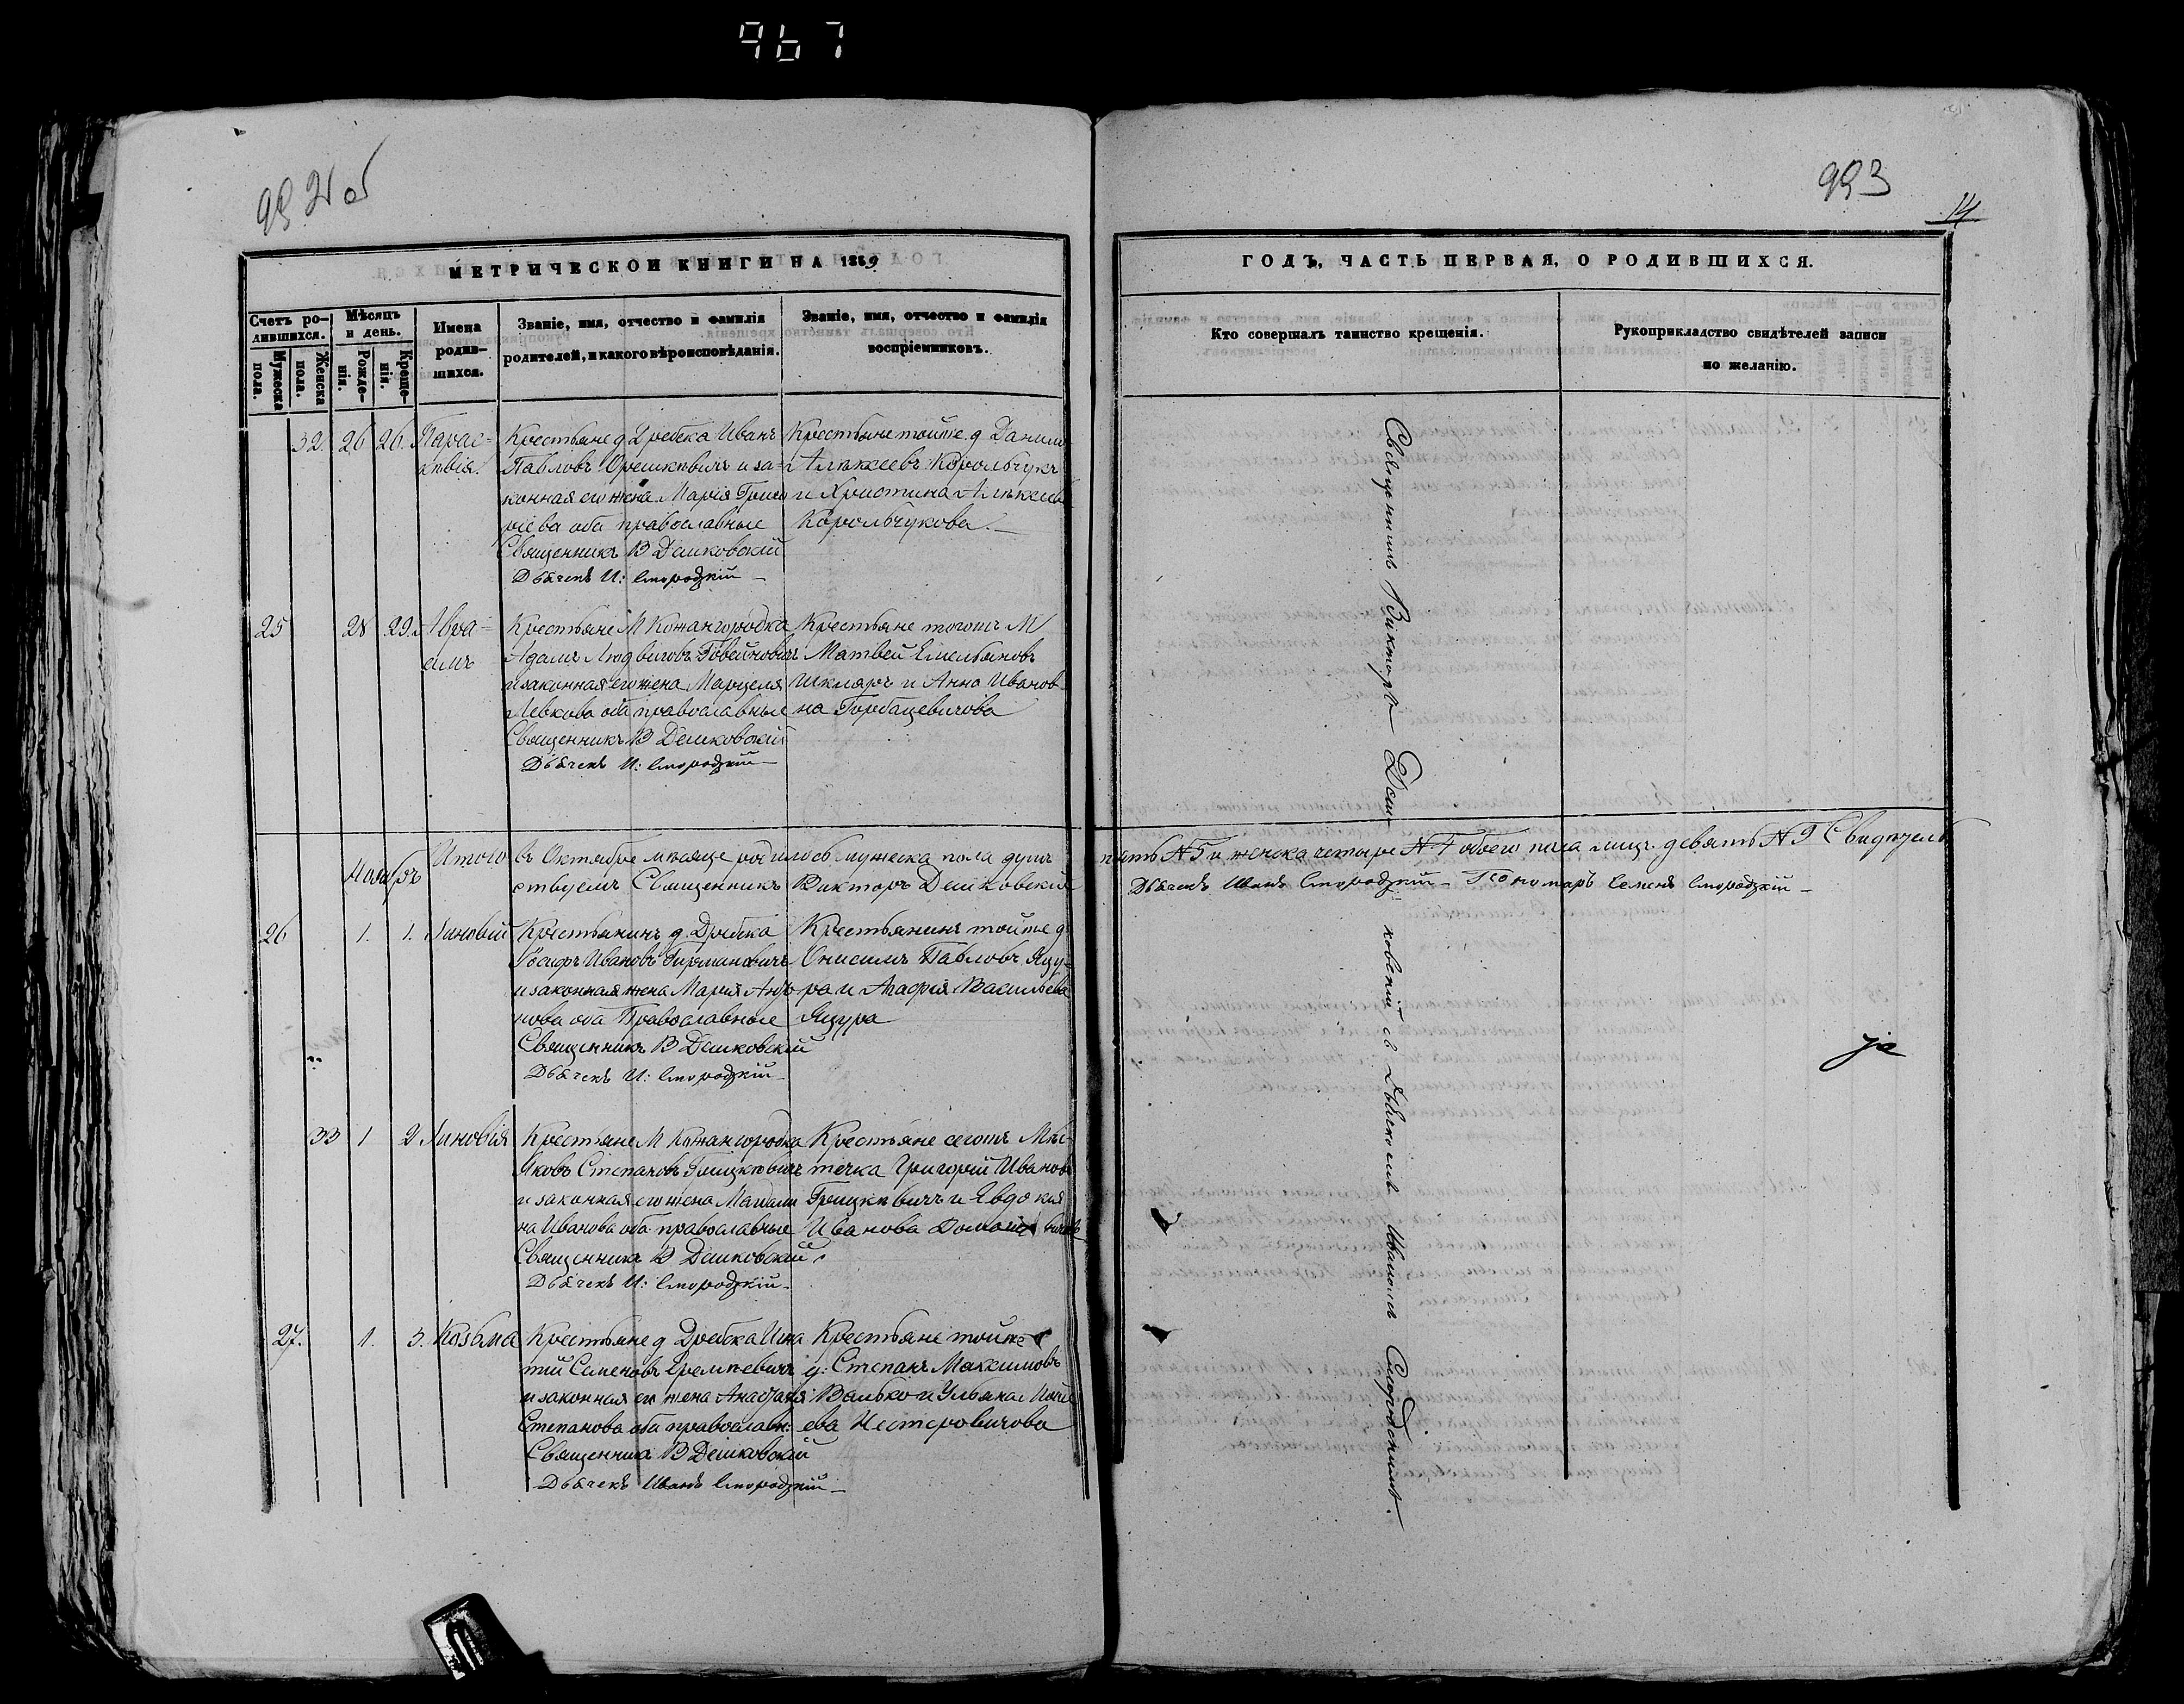 967
992 об
993
14
МЕТРИЧЕСКОЙ КНИГИ НА 1869
ГОДЪ, ЧАСТЬ ПЕРВАЯ, О РОДИВШИХСЯ.
Счетъ ро-
дившихся.
Мужеска
пола.
Женска
пола.
Мѣсяцъ
и день.
Рожде-
нія.
Креще-
нія.
Имена
родив-
шихся.
Званіе, имя, отчество и фамилія
родителей, и какого вѣроисповѣданія.
Званіе, имя, отчество и фамилія
воспріемниковъ.
Кто совершалъ таинство крещенія.
Рукоприкладство свидѣтелей записи
по желанію.
32. 26 26. Парас-
кевія.
Крестьяне д. Дребска Иванъ
Павловъ и за-
конная его жена Марія Григо
ріева оба православные
Священникъ В Дешковскій
Дьячекъ И: Смородскій
Крестьяне тойже д Данило
Алексеевъ Корольчукъ
и Христина Алексеев
Корольчукова.
25 28 29. Авра-
амъ
Крестьяне М Кожангородка
Адамъ Людвиговъ
и законная его жена Марцеля
Левкова оба православные
Священникъ В Дешковскій
Дьячекъ И: Смородскій
Крестьяне тогожъ М
Матвей Емельяновъ
Шкляръ и Анна Иванов-
на Горбацевичова
Итого въ Октябре месяце родилось мужеска пола душъ пять № 5 и женска четыре № 4 обоего пола лицъ девять № 9 Свидетель
ствуемъ Священникъ Викторъ Дешковскій
Дьячекъ Иванъ Смородскій Пономаръ Семенъ Смородскій
Ноябрь
26 1. 1. Зиновій
Крестьянинъ д. Дребска
Іосифъ Ивановъ
и законная жена Мария Анд
нова оба Православные
Священникъ В Дешковскій
Дьячекъ И: Смородскій
Крестьянинъ тойже д
Онисимъ Павловъ Яцу-
ра и Агафія Васильева
Яцура
33 1 2 Зиновія
Крестьяне М Кожангородка
Яковъ Степановъ Грицкевичъ
и законная его жена Магдали
на Иванова оба православные
Священникъ В Дешковскій
Дьячекъ И: Смородскій
Крестьяне сегожъ Мѣс-
течка Григорій Ивановъ
Грицкевичъ и Евдокия
Иванова
27. 1. 3. Козьма
Крестьяне д Дребска Игна
тій Семеновъ
и законная его жена Анастасія
Степанова оба православн:
Священникъ В Дешковскій
Дьячекъ Иванъ Смородскій
Крестьяне тойже
д: Степанъ Максимовъ
Валько и Ульяна
ева Нестеровичова
Священникъ Викторъ Дешковскій съ Дьячкомъ Иваномъ Смородскимъ.